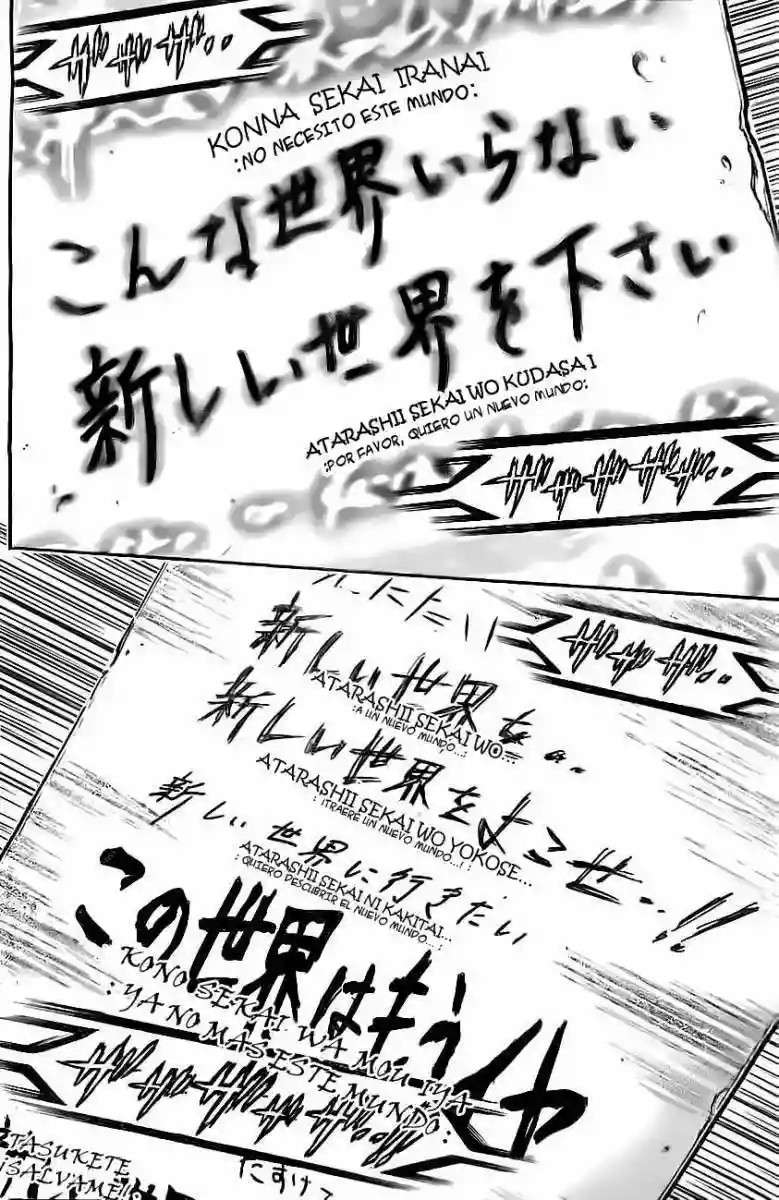 KONNA SEKAI IRANAI
:NO NECESITO ESTE MUNDO:
こんな世界いらない
新しい世界を下さい
ATARASHII SEKAI WO KUDASAI
:POR FAVOR, QUIERO UN NUEVO MUNDO:
新しい世界を...
ATARASHII SEKAI WO...
:A UN NUEVO MUNDO...:
新しい世界をよこせ...!!
ATARASHII SEKAI WO YOKOSE...
: ¡TRAERE UN NUEVO MUNDO...! :
新しい世界に行きたい
ATARASHII SEKAI NI KAKITAI...
: QUIERO DESCUBRIR EL NUEVO MUNDO... :
この世界はもういや
KONO SEKAI WA MOU IYA
: YA NO MAS ESTE MUNDO:
TASUKETE
¡SALVAME!!
たすけて